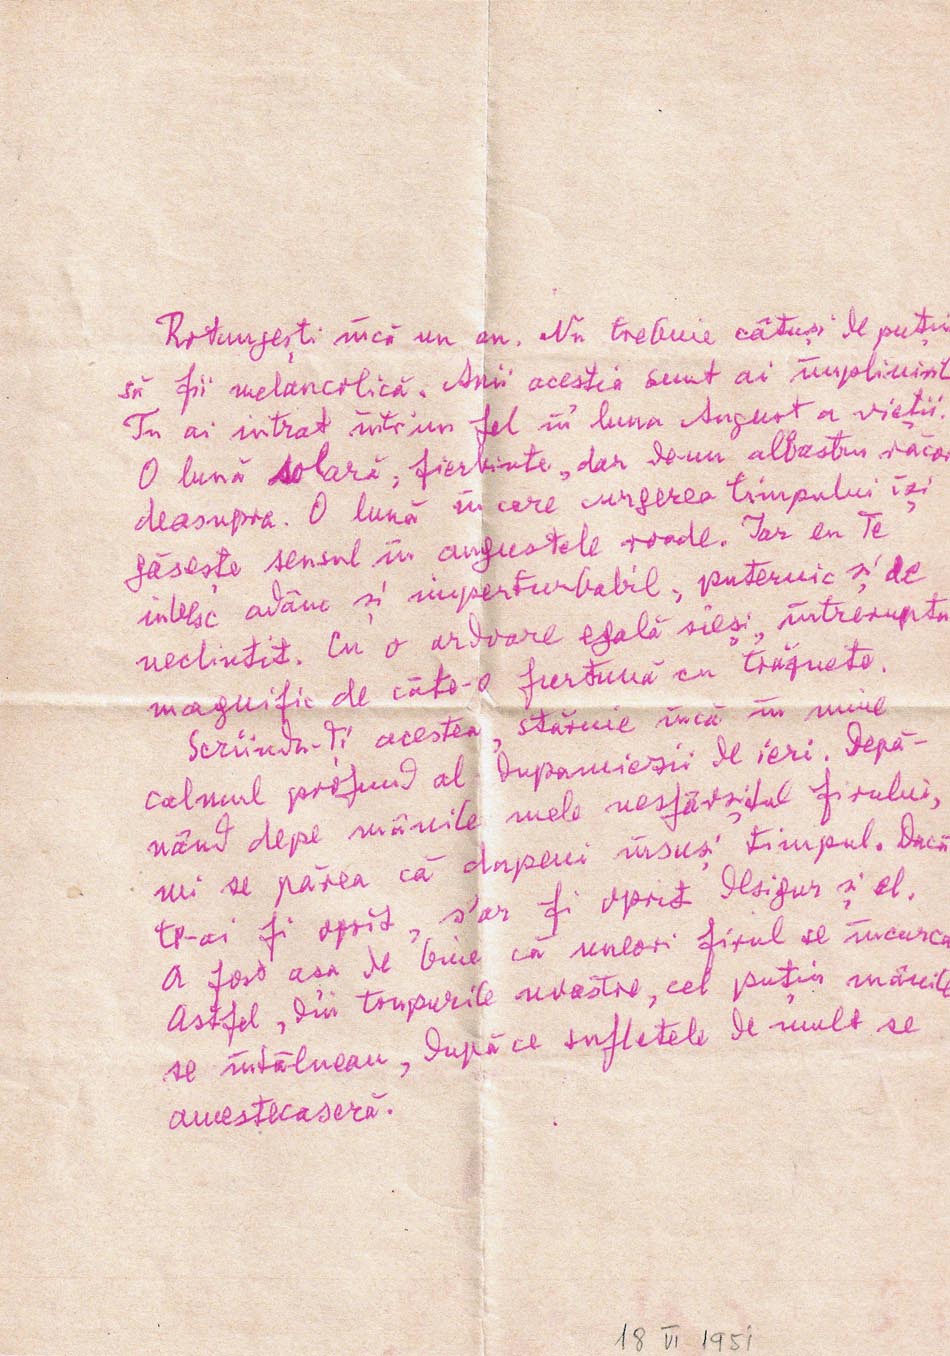 Rotunzești încă un an. Nu trebuie câtuși de puțin
să fii melancolică. Anii aceștia sunt ai împlinirii
Tu ai intrat într'un fel în luna August a vieții.
O lună solară, fierbinte, dar de-un albastru răcor
deasupra. O lună în care curgerea timpului își
găsește sensul în augustele roade. Iar eu Te
iubesc adânc și imperturbabil, puternic și de
neclintit. Cu o ardoare egală sieși, întreruptă
magnific de câte-o furtună cu trăsnete.
Scriindu-Ți acestea, stăruie încă în mine
calmul profund al dupamiezii de ieri. Depă-
nând depe mânile mele nesfârșitul firului,
mi se părea că depeni însuși timpul. Dacă
te-ai fi oprit, s'ar fi oprit desigur și el.
A fost așa de bine că uneori firul se încurca
Astfel, din trupurile noastre, cel puțin mânile
se întâlneau, după ce sufletele de mult se
amestecaseră.
18 VI 1951